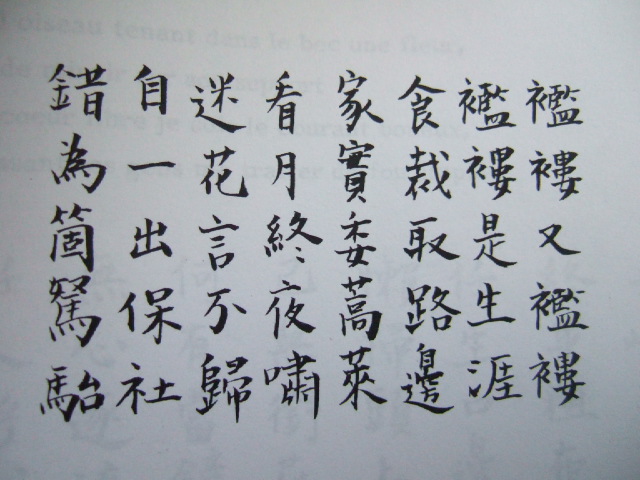 襤褸又襤褸
襤褸是生涯
食裁取路邊
家實委蒿萊
看月終夜嘯
迷花言不歸
自一出保社
錯為箇駑駘
oiseau tenant dans le bec une fleur,